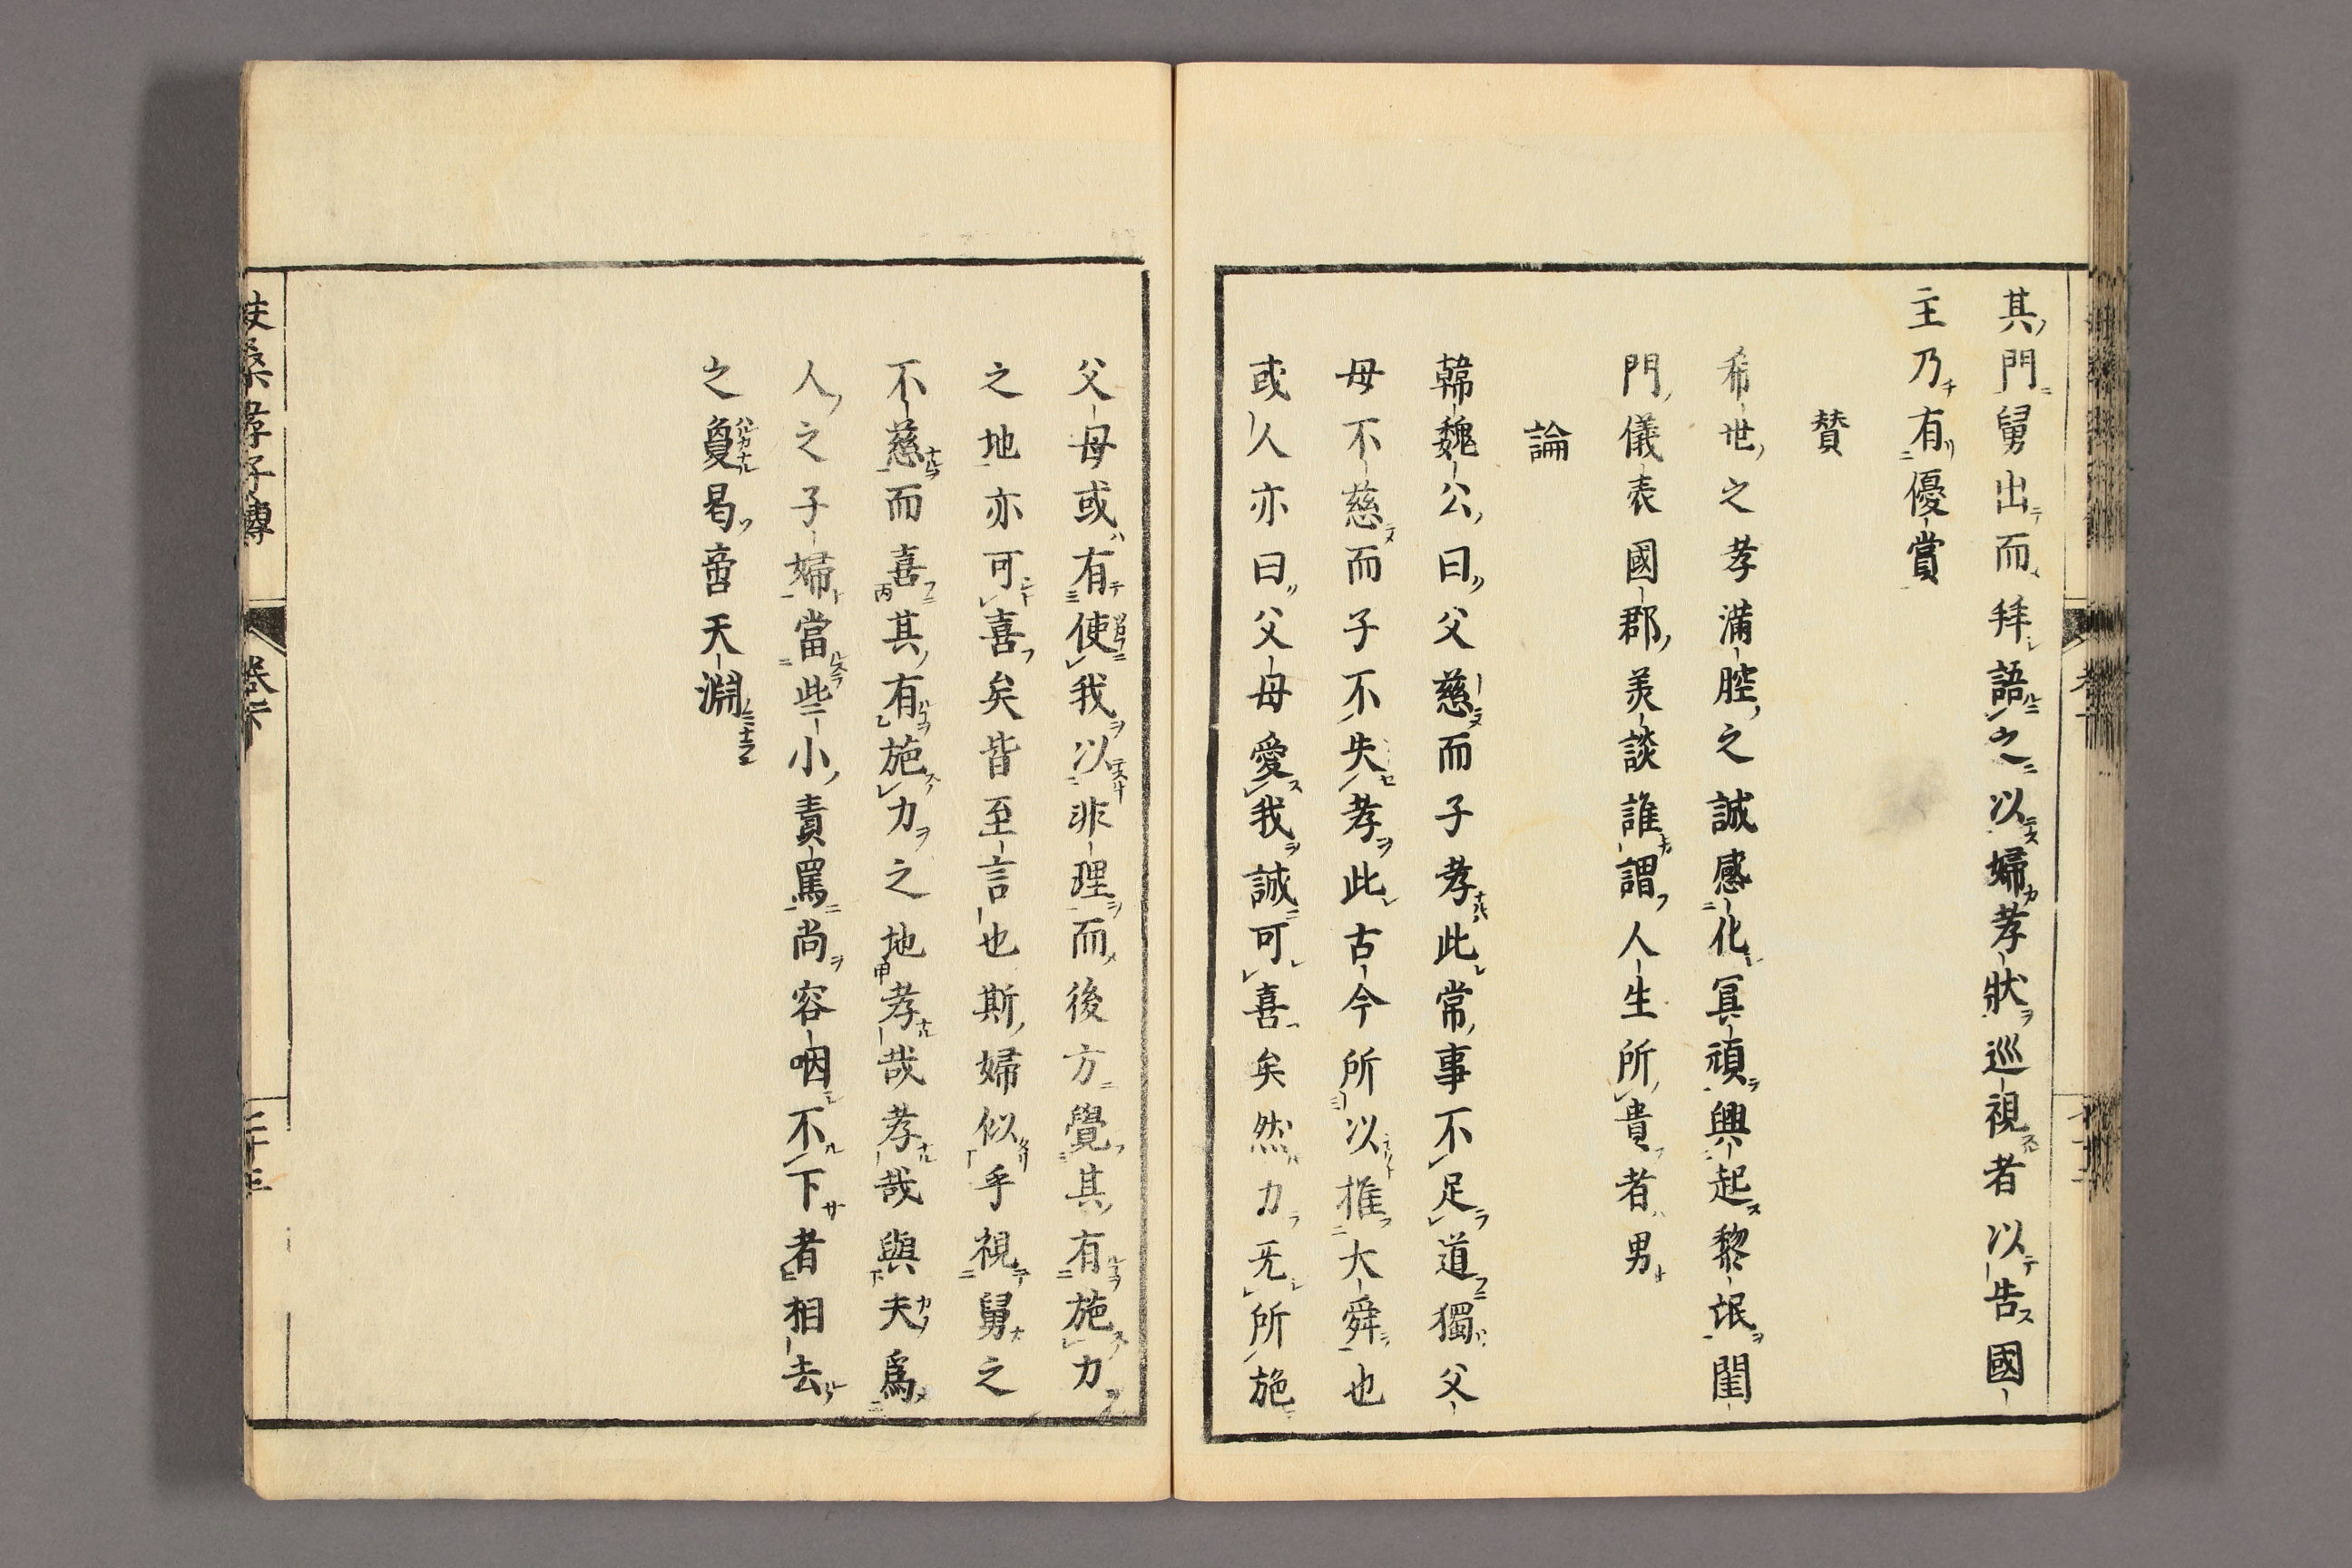 其門舅出而拜語之以婦孝狀巡視者以告國
主乃有優賞
賛
希世之孝満腔之誠感化冥頑興起黎氓閨
門儀表國郡羙談誰謂人生所貴者男
論
韓魏公曰父慈而子孝此常事不足道獨父
母不慈而子不失孝此古今所以推大舜也
或人亦曰父母愛我誠可喜矣然力无所施
父母或有使我以非理而後方覺其有施力
之地亦可喜矣皆至言也斯婦似乎視舅之
不慈而喜其有施力之地孝哉孝哉與夫爲
人之子婦當些小責罵尚容咽不下者相去
之敻曷啻天淵
扶桑孝子傳
卷下
二十三